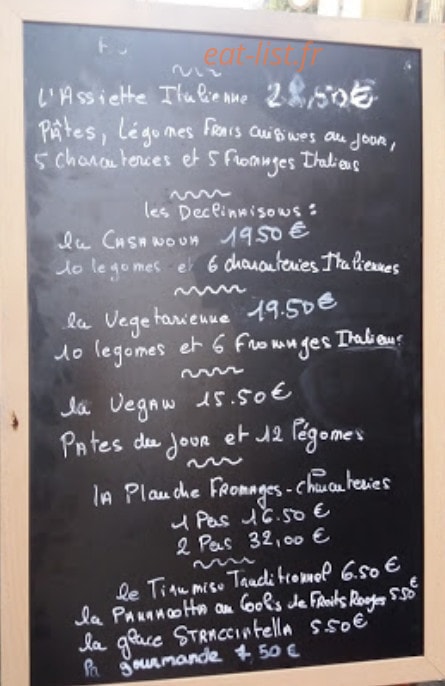 eat-list.fr
L'Assiette Italienne 2,50€
Pâtes, légomes Frais cuisines au jour,
5 charcuteries et 5 Fromages Italiens
les Declinaisons :
la CASANOVA 19.50€
10 legomes et 6 charcuteries Italiennes
la Vegetarienne 19.50€
10 legomes et 6 Fromages Italiens
la VegaN 15.50€
PAtes du Jour et 12 légomes
lA Planche Fromages-Charcuteries
1 Pers 16.50€
2 Pers 32,00€
le Tiramiso Traditionnel 6.50€
la Pannacotta au Coolis de Fruits Rouges 5.50€
la glace STRACCIATELLA 5.50€
gourmande 7,50€